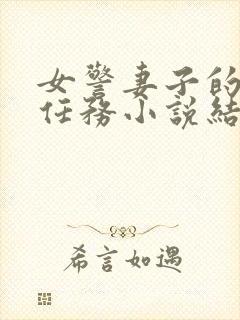 女警妻子的
任務小說結
希言如遇